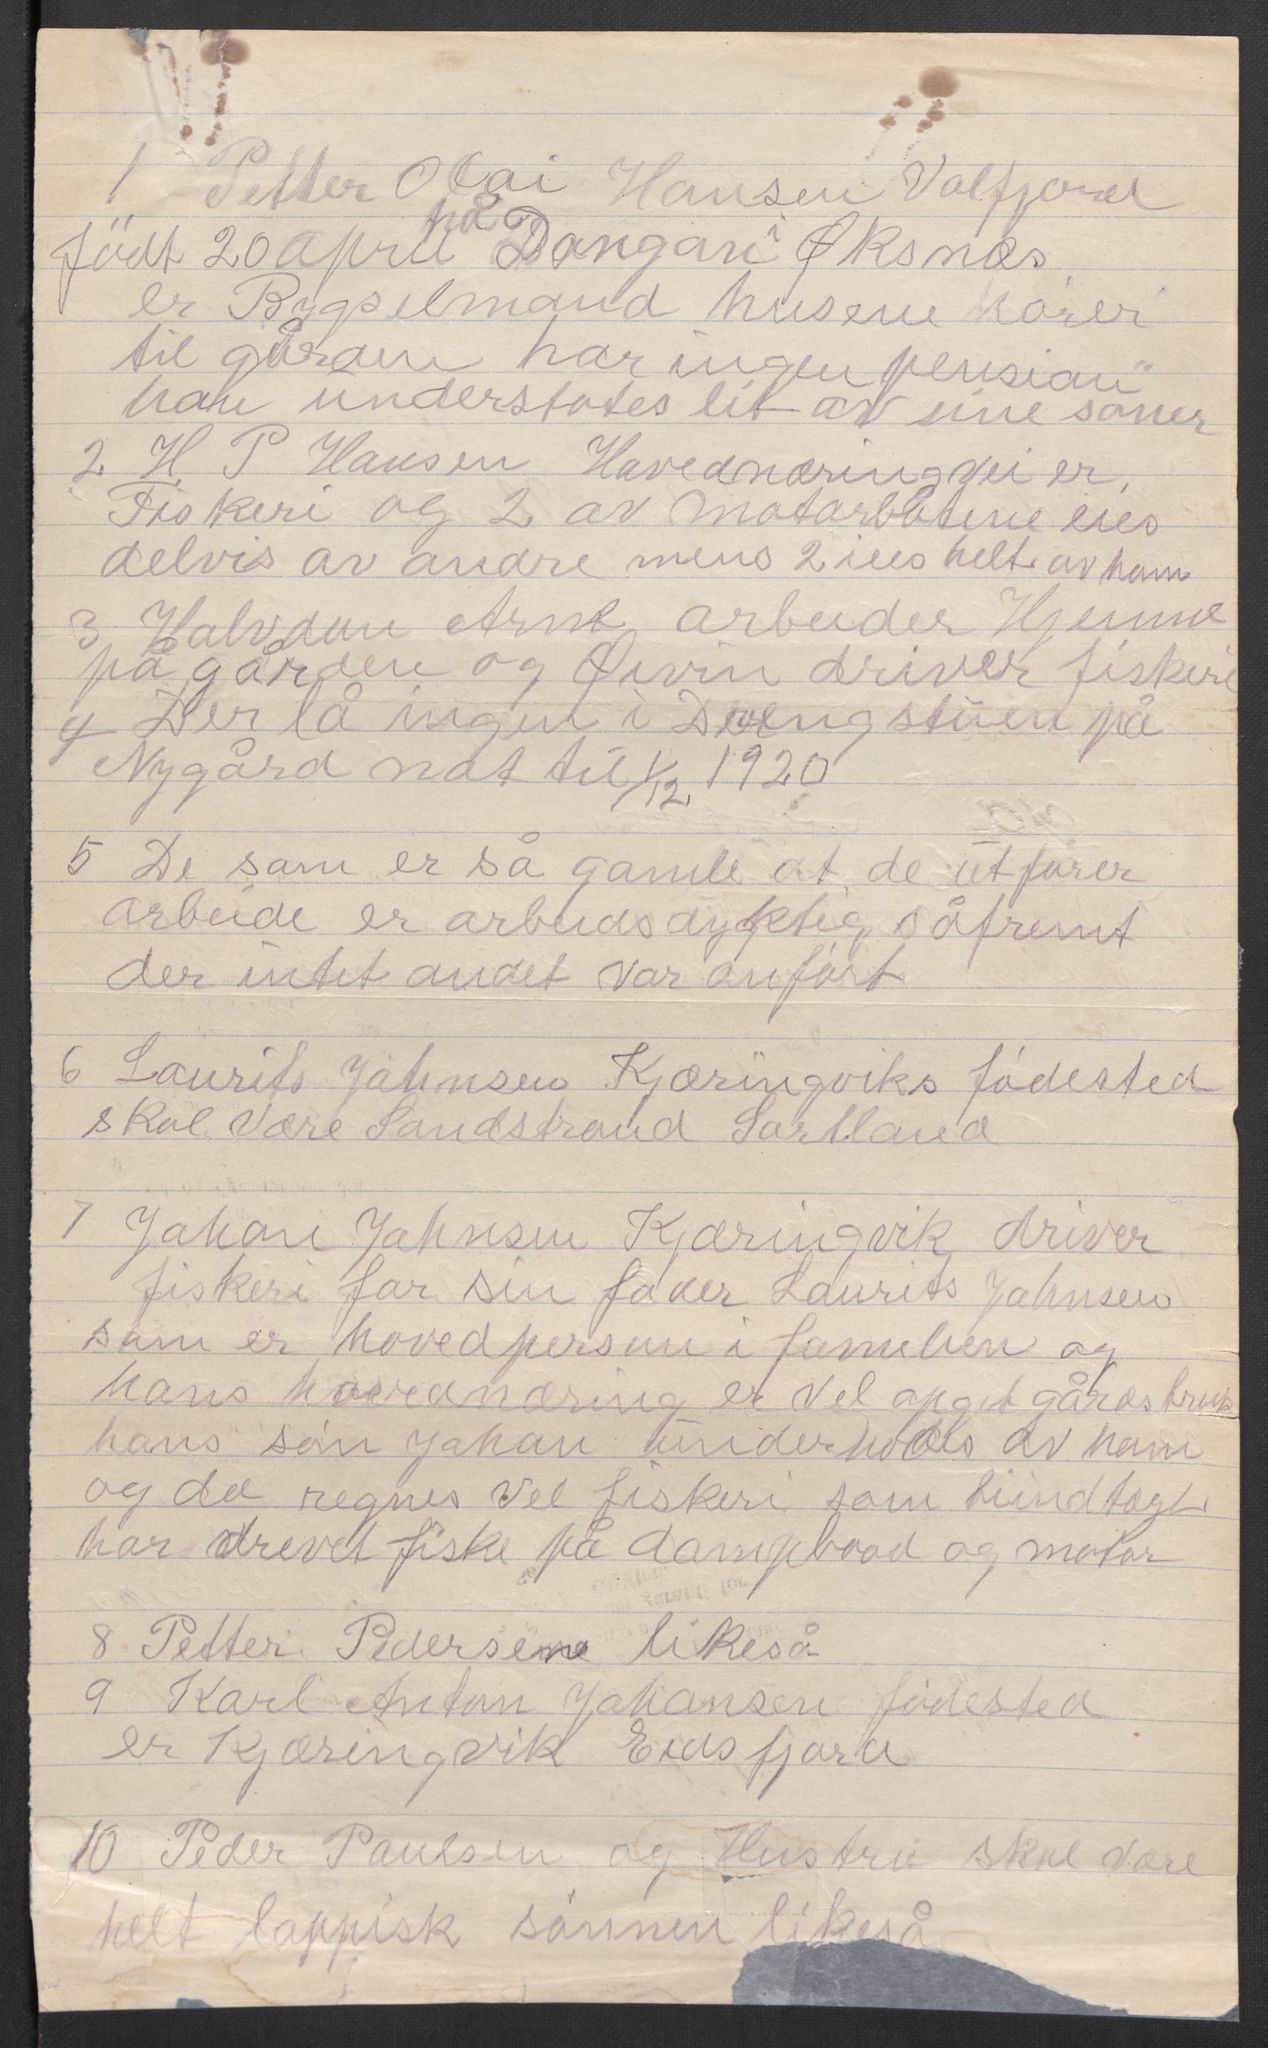 1 Petter Olai Hansen Valfjord
født 20 April på Dangan i Øksnes
er Bygselmand husene hører
til gården har ingen pension
han understøtes lit av sine söner
2 H. P Hansen Havednæringvei er
Fiskeri og 2 av motorbåtene eies
delvis av andre mens 2 iees helt av ham
3 Halvdan Arne arbeider Hjemme
på gården og Øivin driver fiskeri
4 Der lå ingen i Drengstuen på
Nygård nat til 1/12 1920
5 De som er så gamle at de utfører
arbeide er arbeidsdyktig såfremt
der intet andet var anført
6 Laurits Johnsen Kjæringviks födested
skal være Sandstrand Sortland
7 Johan Johnsen Kjæringvik driver
fiskeri for sin fader Laurits Johnsen
som er hovedperson i familien og
hans hovednæring er vel opgit gårdsbruk
hans sön Johan underholdes av ham
og da regnes vel fiskeri som bindtægt
har drevet fiske på dampbaad og motor
8 Petter Pedersen likeså
9 Karl Anton Johansen födested
er Kjæringvik Eidsfjord
10 Peder Paulsen og Hustru skal være
helt lappisk sönnen likeså